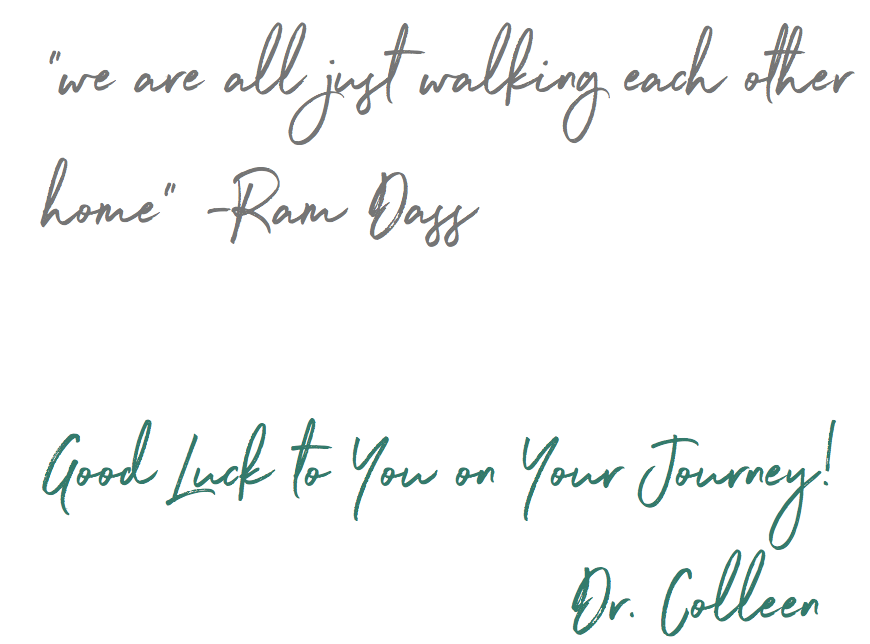 "we are all just walking each other
home" -Ram Dass
Good Luck to You on Your Journey!
Dr. Colleen